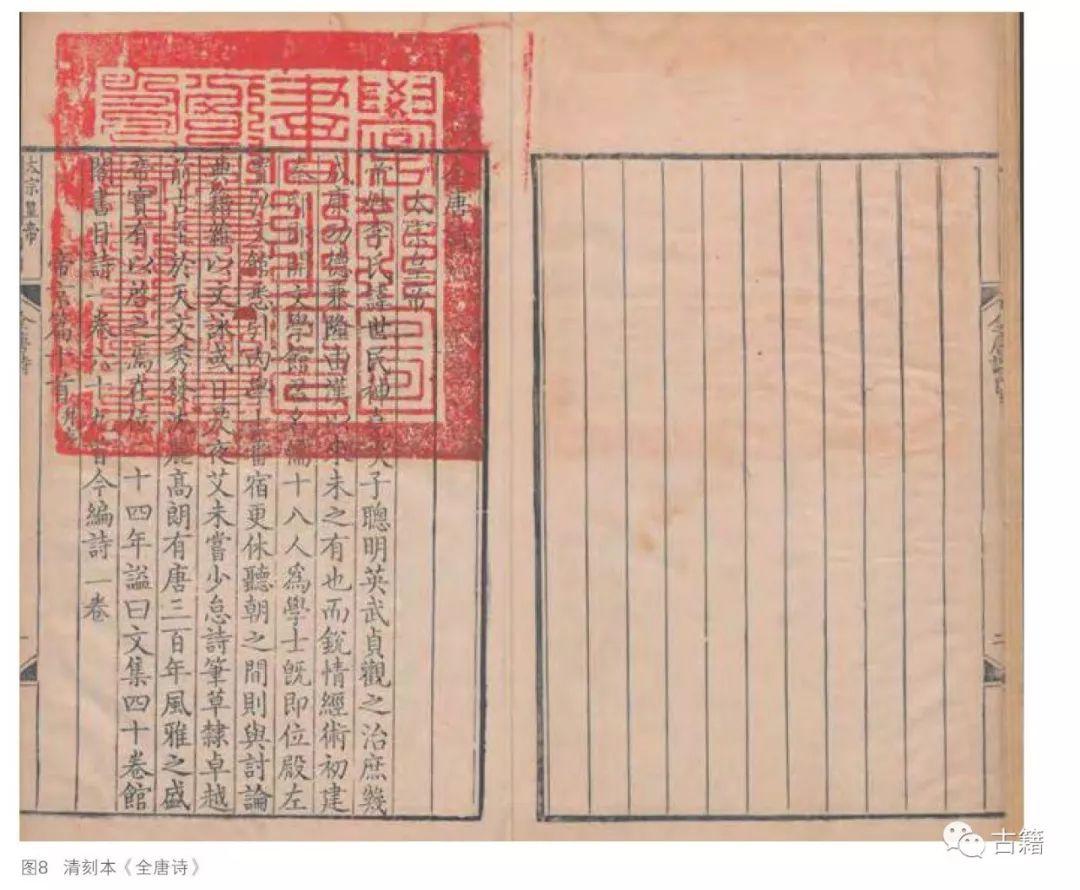 全唐詩
二
全唐詩
太宗皇帝
帝姓李氏諱世民神堯次子聰明英武貞觀之治庶幾
成康功德兼隆由漢以來未之有也而銳情經術初建
秦邸即開文學館召名儒十八人爲學士旣即位殿左
置弘文館悉引內學士番宿更休聽朝之間則與討論
典籍雜以文詠或日昃夜艾未嘗少怠詩筆草隸卓越
前古至於天文秀發沈麗高朗有唐三百年風雅之盛
帝實有以啓之焉在位二十四年謚曰文集四十卷館
閣書目詩一卷六十九首今編詩一卷
帝京篇十首并序
太宗皇帝
全唐詩
一
图8 清刻本《全唐诗》
古籍